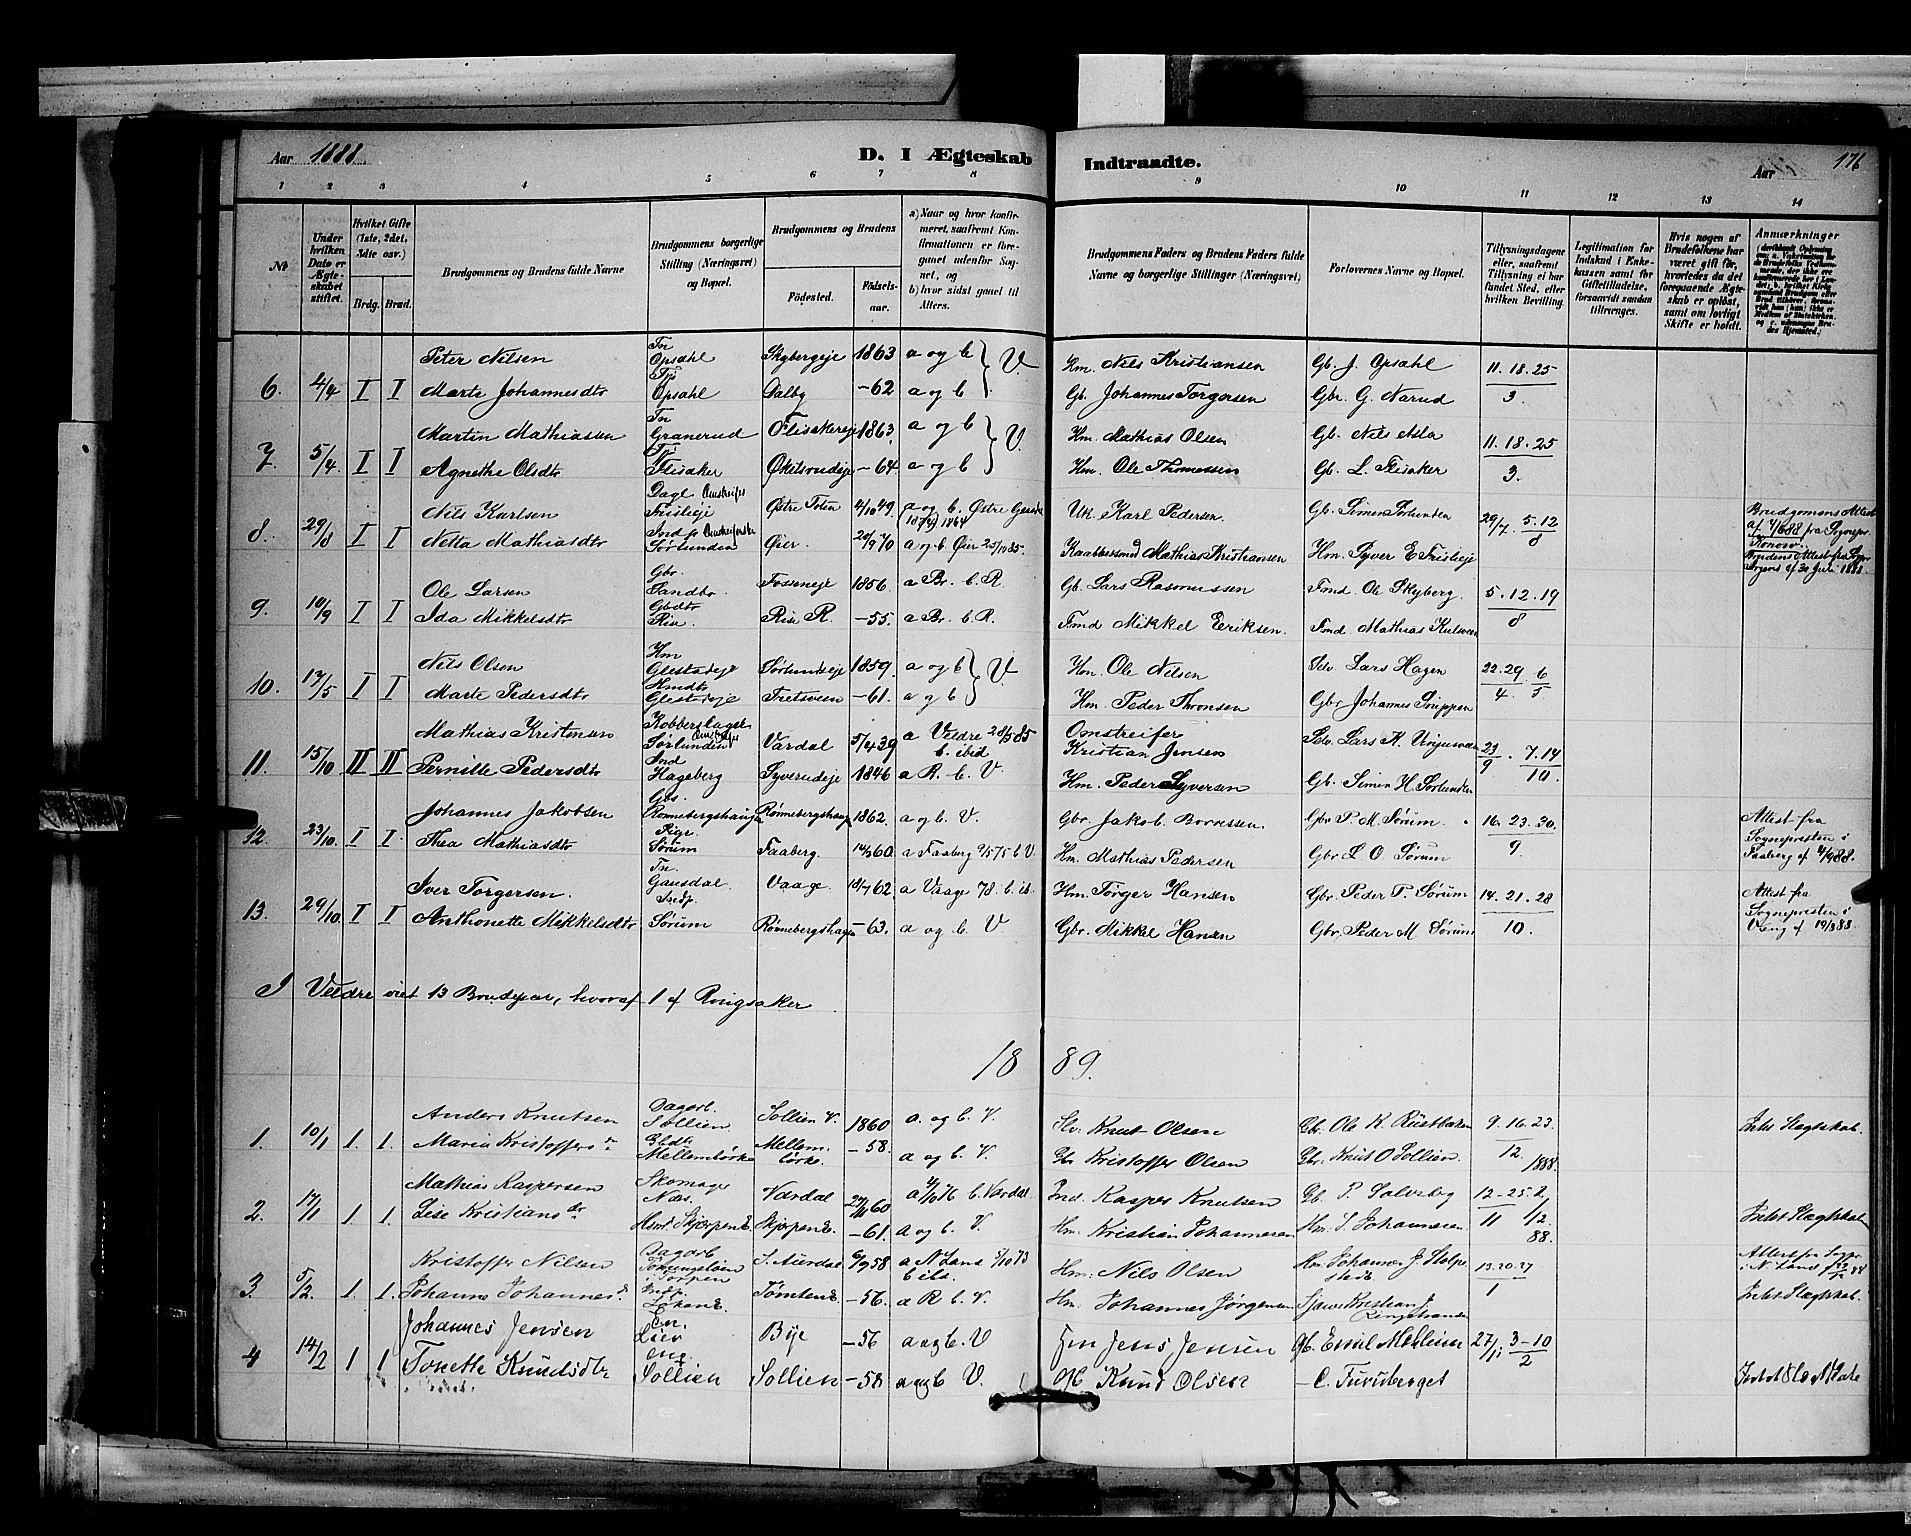 Aar 1888. D. I Ægteskab Indtraadte. Aar 176
1 2 3 4 5 6 7 8 9 10 11 12 13 14
№
Under hvilken Dato er Ægteskabet stiftet.
Hvilket Gifte (1ste, 2det, 3die osv.)
Brdg. Brud.
Brudgommens og Brudens fulde Navne
Brudgommens borgerlige Stilling (Næringsvei) og Bopæl.
Brudgommens og Brudens
Fødested. Fødselsaar.
a) Naar og hvor konfirmeret, saafremt Konfirmationen er foregaaet udenfor Sognet, og
b) hvor sidst gaaet til Alters.
Brudgommens Faders og Brudens Faders fulde Navne og borgerlige Stillinger (Næringsvei)
Forlovernes Navne og Bopæl.
Tillysningsdagene eller, saafremt Tillysning ei har fundet Sted, efter hvilken Bevilling.
Legitimation for Indskud i Enkekassen samt for Giftetilladelse, forsaavidt saadan tiltrænges.
Hvis nogen af Brudefolkene har været gift før, hvorledes da det foregaaende Ægteskab er opløst, samt om lovligt Skifte er holdt.
Anmærkninger
Peter Nilsen Tn Opsahl Skybergeje 1863 a og b } V. Hm. Nils Kristiansen Gb. J. Opsahl 11. 18. 25
6. 4/4 I I Marte Johannesdtr Tp Opsahl Dalby -62 a og b Gb. Johannes Torgersen Gbr. G. Narud 3.
Martin Mathiassen Tn Granerud Flisakereje 1863 a og b } V. Hm. Mathias Olsen Gb. Nils Asla 11. 18. 25
7. 5/4 I I Agnethe Olsdtr Tp Flisaker -64 a og b Hm. Ole Thomassen Gb. L. Flisaker 3.
Nils Karlsen Dagl. Omstreifer Frisleje Østre Toten 4/10 49 a og b. Østre Gausdal 1864 Uk. Karl Pedersen. Gb. Simen Sørlunden 29/7. 5. 12 Brudgomens Attest
8. 29/8 I I Netta Mathiasdtr Indp Omstreiferske Sørlunden Øier. 20/9 70 a og b. Øier 25/10 85. Mathias Kristiansen Hm. Syver E Frisleje 8 af 4/6 88 fra Sognepr. Konow. Brudens Attest fra
Ole Larsen Gbr. Sandbo Fosseneje 1856 a Br. b. R. Gb. Lars Rasmussen Fmd Ole Skyberg. 5. 12. 19 af 30 Juli 1888.
9. 10/9 I I Ida Mikkelsdtr Gbdtr Rise. Rise R. -55. a Br. b. R. Fmd Mikkel Eriksen. Fmd. Mathias 8
Nils Olsen Hm Glestadeje Sørlundeje 1859. a og b } V Hm. Ole Nilsen Selv. Lars Hagen 22. 29. 6
10. 17/5 I I Marte Pedersdtr Hmdtr Glestadeje Fretsveen -61. a og b Hm. Peder Thronsen Gbr Johannes 4. 5
Mathias Kristensen Kobberslager Omstreifer Sørlunden Vardal 5/4 39 a Veldre 28/5 85 b. ibid Omstreifer Kristian Jensen Selv. Lars K. 23/9. 7. 14
11. 15/10 II II Pernille Pedersdtr Ind Hageberg Syverudeje 1846 a R. b. V. Hm. Peder Syversen Gb. Simen H. Sørlunden 10.
Johannes Jakobsen Gbs. Rønnebergshaugen Rønnebergshaugen 1862. a og b. V. Gbr. Jakob Bornssen. Gbr P. M. Sørum. 16. 23. 30. Attest fra
12. 23/10. I I. Thea Mathiasdtr Pige. Sørum Faaberg. 14/3 60. a Faaberg 9/5 75 b V. Hm. Mathias Pedersen Gbr. L O Sørum 9. Sognepresten i Faaberg af 4/9 88.
Iver Torgersen. Tn. Gausdal. Vaage 18/7 62. a Vaage 78. b. ib. Hm. Torger Hansen Gbr. Peder P. Sørum 14. 21. 28 Attest fra
13. 29/10. I I Anthonette Mikkelsdtr Indp. Sørum Rønnebergshagen -63. a og b. V Gbr. Mikkel Hansen Gbr. Peder M. Sørum 10. Sognepresten i Vang af 19/3 88.
I Veldre viet 13 Brudepar, hvoraf 1 af Ringsaker
18 89.
Anders Knutsen Dagarb. Sollien Sollien V. 1860 a. og b. V. Slv. Knut Olsen Gbr. Ole K. Rustbakken 9. 16. 23.
1. 10/1 1. 1. Maria Kristoffersdr Gbdt. Mellembørke Mellembørke. -58. a og b. V. Gbr Kristoffer Olsen Gbr. Knut O Sollien. 12 1888. Intet Slægtskab.
Mathias Kaspersen Skomager Næs. Vardal 27/11 60 a 4/10 76 b. Vardal Ind. Kasper Knutsen Gb. P. Salvsbog 12-25. 2
2. 17/1 1 1. Lise Kristiansdr Hsmt. Skjerpen E. Skjerpen E. -61. a og b. V. Hm. Kristian Johannesen Hm. S. Johannesen 11 1/2 88. Intet Slægtskab
Kristoffer Nilsen Dagarb. i Torpen S. Aurdal 6/9 58 a N. Land 5/10 73 b ibd. Hm. Nils Olsen Hm. Johannes J. Stolpestad 13. 20. 27 Attest fra Sogpr. i N. Land
3. 5/2. 1 1. Johanne Johannesd. Indp. Tømten E. -56. a R b. V. Hm. Johannes Jørgensen Kristian J. Ringstranden 1 Intet Slægtskab.
Johannes Jensen Em. Lier Bye -56 a og b. V Hm Jens Jensen Gb. Emil Mæhlum 27/1, 3-10
4 14/2 1 1 Tonette Knudsdtr Ung. Sollien Sollien -58 a og b V. Gb Knud Olsen - C. Furuberget 2 Intet Slægtskab